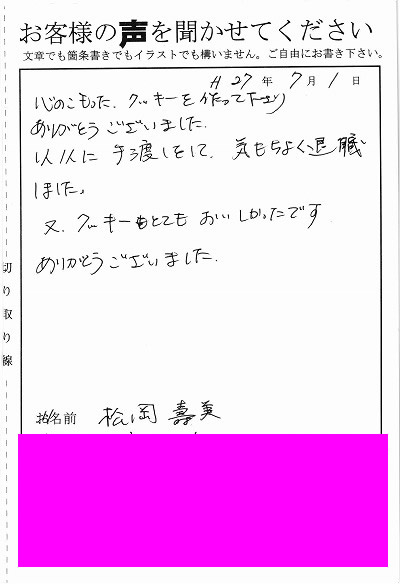 お客様の声を聞かせてください
文章でも箇条書きでもイラストでも構いません。ご自由にお書き下さい。
H 27 年 7 月 1 日
心のこもった、クッキーを作って下さり
ありがとうございました。
1人1人に手渡しをして、気もちよく退職
しました。
又、クッキーもとてもおいしかったです
ありがとうございました。
切り取り線
お名前 松岡 壽美